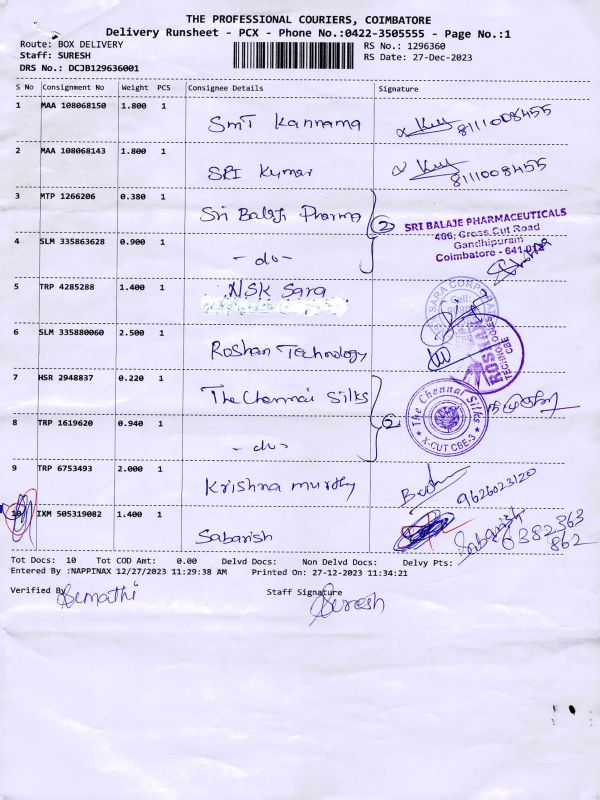 THE PROFESSIONAL COURIERS, COIMBATORE
Delivery Runsheet - PCX - Phone No.:0422-3505555 - Page No.:1
Route: BOX DELIVERY RS No.: 1296360
Staff: SURESH RS Date: 27-Dec-2023
DRS No.: DCJB129636001
S No Consignment No Weight PCS Consignee Details Signature
1 MAA 108068150 1.800 1 SMT Kannama 8111008455
2 MAA 108068143 1.800 1 SRI Kumar 8111008455
3 MTP 1266206 0.380 1 Sri Balaji Pharma 2
SRI BALAJE PHARMACEUTICALS
406, Cross Cut Road
Gandhipuram
Coimbatore - 641 012
4 SLM 335863628 0.900 1 - do -
5 TRP 4285288 1.400 1 NSK Sara
6 SLM 335880060 2.500 1 Roshan Technology
7 HSR 2948837 0.220 1 The Chennai Silks
The Chennai Silks
X-CUT CBE-3
8 TRP 1619620 0.940 1 - do -
9 TRP 6753493 2.000 1 Krishna murthy 9626023120
10 IXM 505319082 1.400 1 Sabarish Sabarish 6382363
862
Tot Docs: 10 Tot COD Amt: 0.00 Delvd Docs: Non Delvd Docs: Delvy Pts:
Entered By :NAPPINAX 12/27/2023 11:29:38 AM Printed On: 27-12-2023 11:34:21
Verified By Sumathi Staff Signature Suresh